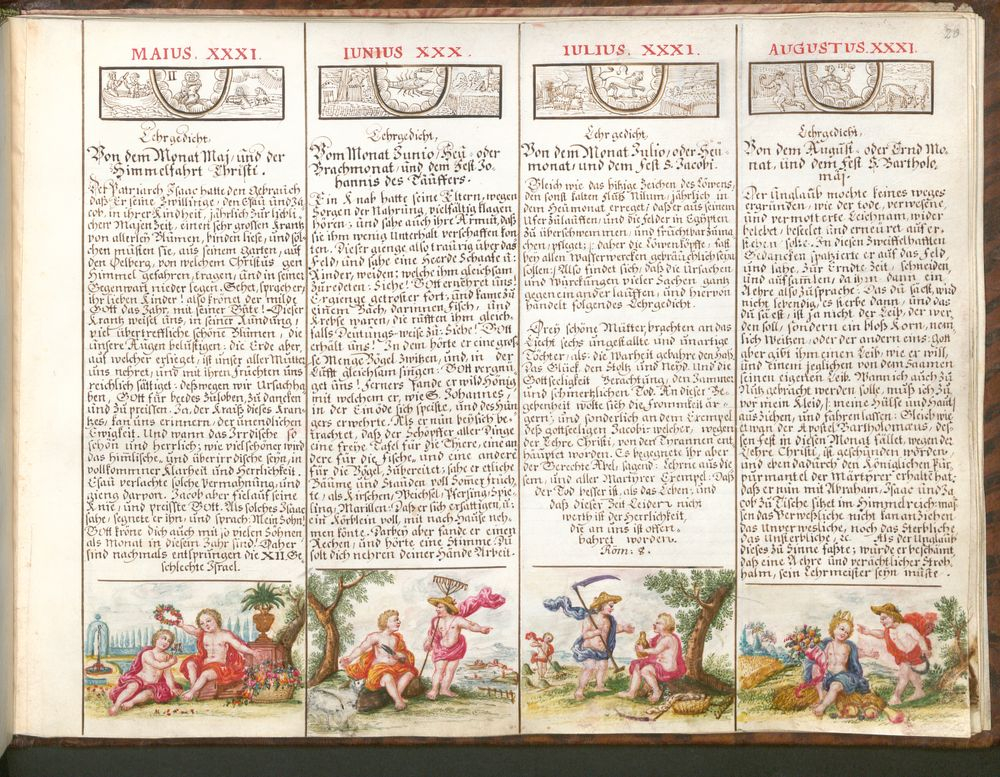 20
MAIUS. XXXI.
II
Lehrgedicht,
Von dem Monat Maj, und der
Himmelfahrt Christi.
Der Patriarch Isaac hatte den Gebrauch
daß Er seine Zwillinge, den Esau und Ja-
cob, in ihrer Kindheit, jährlich zur liebli-
chen MajenZeit, einen sehr grossen Krantz
von allerley Blumen, binden liese, und sol-
chen musten sie, aus seinem Garten, auf
den Oelberg, von welchen Christus gen
Himmel gefahren, tragen, und in seiner
Gegenwart nieder legen. Sehet, sprach er,
ihr lieben Kinder! also krönet der milde
Gott das Jahr, mit seiner Güte! Dieser
Krantz weiset uns, in seiner Ründung,
viel übertreffliche schöne Blumen, die
unsere Augen belustigen: die Erde aber,
aus welcher er, ist unser aller Mutter
uns nehret, und mit ihren Früchten uns
reichlich sättiget: deßwegen wir Ursach ha-
ben, Gott für beedes zu loben, zu dancken
und zu preissen. Ja, der Kraiß dieses Kran-
tzes, kan uns erinnern, der unendlichen
Ewigkeit. Und wann das Irrdische so
schön und herrlich; wie viel schöner wird
das himlische, und überirrdische seyn, in
vollkommner Klarheit und Herrlichkeit.
Esau verlachte solche Vermahnung, und
gieng darvon. Jacob aber fiel auf seine
Knie, und preisste Gott. Als solches Isaac
sahe, segnete er ihn, und sprach: Mein Sohn!
Gott kröne dich auch mit so vielen Söhnen
als Monat in diesem Jahr sind! Daher
sind nachmals entsprungen die XII. Ge-
schlechte Israel.
IUNIUS XXX.
Lehrgedicht,
Vom Monat Junio, Heu- oder
Brachmonat, und dem Fest Jo-
hannis des Täuffers.
Ein Knab hatte seine Eltern, wegen
Sorgen der Nahrung, vielfältig klagen
hören; und sahe auch ihre Armut, daß
sie ihm wenig Unterhalt verschaffen kon-
ten. Dieser gienge also traurig über das
Feld, und sahe eine Heerde Schaafe u:
Rinder, weiden; welche ihm gleichsam
zuredeten: Siehe! Gott ernehret uns!
Er gienge getroster fort, und kame zu
einem Bach, darinnen Fisch, und
Krebse waren, die rufften ihm gleich-
falls Deutungs-weise zu: Siehe! Gott
erhält uns! In dem hörte er eine gros-
se Menge Vögel zwitzen, und, in der
Lufft gleichsam singen: Gott vergnü-
get uns! Ferners fande er wild Hönig
mit welchem er, wie S. Johannes,
in der Einöde sich speiste, und des Hun-
gers erwehrte. Als er nun bey sich be-
trachtet, daß der Schöpffer aller Dinge
eine freye Tafel für die Thiere, eine an-
dere für die Fische, und eine andere
für die Vögel, zubereitet: sahe er etliche
Bäume und Stauden voll Som̄er früch-
te, als Kirschen, Weichsel, Pfersing, Spie-
ling, Marillen: Daß er sich ersättigen, u:
ein Körblein voll, mit nach Hause neh-
men könte. Darbey aber fande er einen
Rechen, und hörte eine Stim̄me: Du
solt dich nehren deiner Hände Arbeit.
IULIUS. XXXI.
Lehrgedicht,
Von dem Monat Julio, oder Heu-
monat, und dem Fest S. Jacobi.
Gleich wie das hitzige Zeichen des Löwens,
den sonst kalten Fluß Nilum, jährlich in
dem Heumonat erreget, daß er aus seinem
Ufer zulauffen, und die Felder in Egypten
zu überschwemmen, und fruchtbar zuma-
chen, pfleget; daher die Löwenköpffe, fast
bey allen Wasserwercken gebräuchlich seyn
sollen: Also findet sich, daß die Ursachen
und Würckungen vieler Sachen gantz
gegeneinander lauffen, und hiervon
handelt folgendes Lehrgedicht.
Drey schöne Mütter brachten an das
Liecht sechs ungestalte und unartige
Töchter, als: die Warheit gebahre den Haß,
Das Glück den Stoltz und Neyd. Und die
Gottseeligkeit Verachtung, den Jammer
und schmertzlichen Tod. An dieser Be-
gebenheit wolte sich die Frömmkeit är-
gern; und sonderlich an dem Exempel
deß gottseeligen Jacobi: welcher, wegen
der Lehre Christi, von den Tyrannen ent-
hauptet worden. Es begegnete ihr aber
der Gerechte Abel, sagend: Lehrne aus die-
sem, und aller Märtyrer Exempel: Daß
der Tod besser ist, als das Leben; und
daß dieser Zeit Leiden nicht
werth ist der Herrlichkeit,
die an uns ist offen-
bahret worden.
Röm: 8.
AUGUSTUS. XXXI.
Lehrgedicht,
Von dem August- oder Ernd Mo-
nat, und dem Fest S. Bartholo-
mäj.
Der Unglaub mochte keines weges
ergründen, wie der tode, verwesene,
und vermotterte Leichnam, wider
belebet, beseelet und erneuret auf er-
stehen solte. In diesen zweiffelhafften
Gedancken spatzierte er auf das Feld,
und sahe, zur Ernde Zeit, schneiden,
und aufsam̄len, da ihm dann ein
Aehre also zusprache: Das du säest, wird
nicht lebendig, es sterbe dann, und das
du säest, ist ja nicht der Leib, der wer-
den soll, sondern ein bloß Korn, nem-
lich Weitzen, oder der andern eins: Gott
aber gibt ihm einen Leib, wie er will,
und einem jeglichen von dem Saamen
seinen eigenen Leib. Wann ich auch zu
Nutz gebracht werden solle, muß ich zu-
vor mein Kleid, meine Hülse und Haut
aus ziehen, und fahren lassen: Gleich wie
etwan der Apostel Bartholomäus, des-
sen Fest in diesen Monat fället, wegen der
Lehre Christi, ist geschunden worden,
und eben dadurch den Königlichen Pur-
purmantel der Märtyrer erhalten hat;
daß er nun mit Abraham, Isaac und Ja-
cob zu Tische sitzet im Himmelreich: mas-
sen das Verweßliche, nicht kan anziehen
das Unverwesliche, noch das Sterbliche,
das Unsterbliche, &c. Als der Unglaub
dieses zu Sinne faßte; wurde er beschämt
daß eine Aehre und verächtlicher Stroh-
halm, sein Lehrmeister seyn müste.